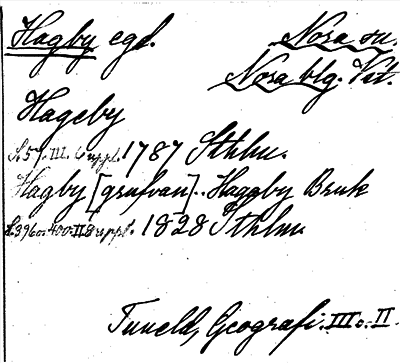 Hagby egd. Nora sn.
Nora blg. Vst.
Hageby
S. 57. III. 6 uppl. 1787 Sthlm.
Hagby [grufvan].. Haggby Bruk
S. 396 o. 400. II. 8 uppl. 1828 Sthlm
Tuneld, Geografi. III o. II.